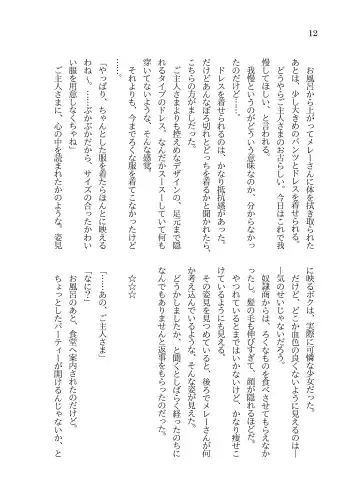 12
お風呂から上がってメレーさんに体を拭き取られた
あとは、少し大きめのパンツとドレスを着せられる。
どうやらご主人さまのおさらしい。今日はこれで我
慢してほしい、と言われる。
我慢というのがどういう意味なのか、分からなかっ
たのだけど……。
ドレスを着せられるのは、かなり抵抗があった。
だけどあんなぼろ切れとどっちを着るかと聞かれたら、
こちらの方がましだった。
ご主人さまよりも控えめなデザインの、足元まで隠
れるタイプのドレス、なんだかスースーしていて何も
穿いてないような、そんな感覚。
それよりも、今までろくな服を着てこなかったけど
……。
「やっぱり、ちゃんとした服を着たらほんとに映える
わね～。……ぶかぶかだから、サイズの合ったかわい
い服を用意しなくちゃね」
ご主人さまに、心の中を読まれたかのような。姿見
に映るボクは、実際に可憐な少女だった。
だけど、どこか血色の良くないように見えるのは―
―気のせいじゃないだろう。
奴隷商からは、ろくなものを食べさせてもらえなか
ったし。髪の毛も伸びすぎて、顔が隠れるほどだ。
やつれているとまではいかないけど、かなり痩せこ
けているようにも見える。
その姿見を見つめていると、後ろでメレーさんが何
か考え込んでいるような、そんな姿が見えた。
どうかしましたか、と聞くとしばらく経ったのちに
なんでもありませんと返事をもらったのだった。
☆☆☆
「……あの、ご主人さま」
「なに？」
お風呂のあと、食堂へ案内されたのだけど。
ちょっとしたパーティーが開けるんじゃないか、と